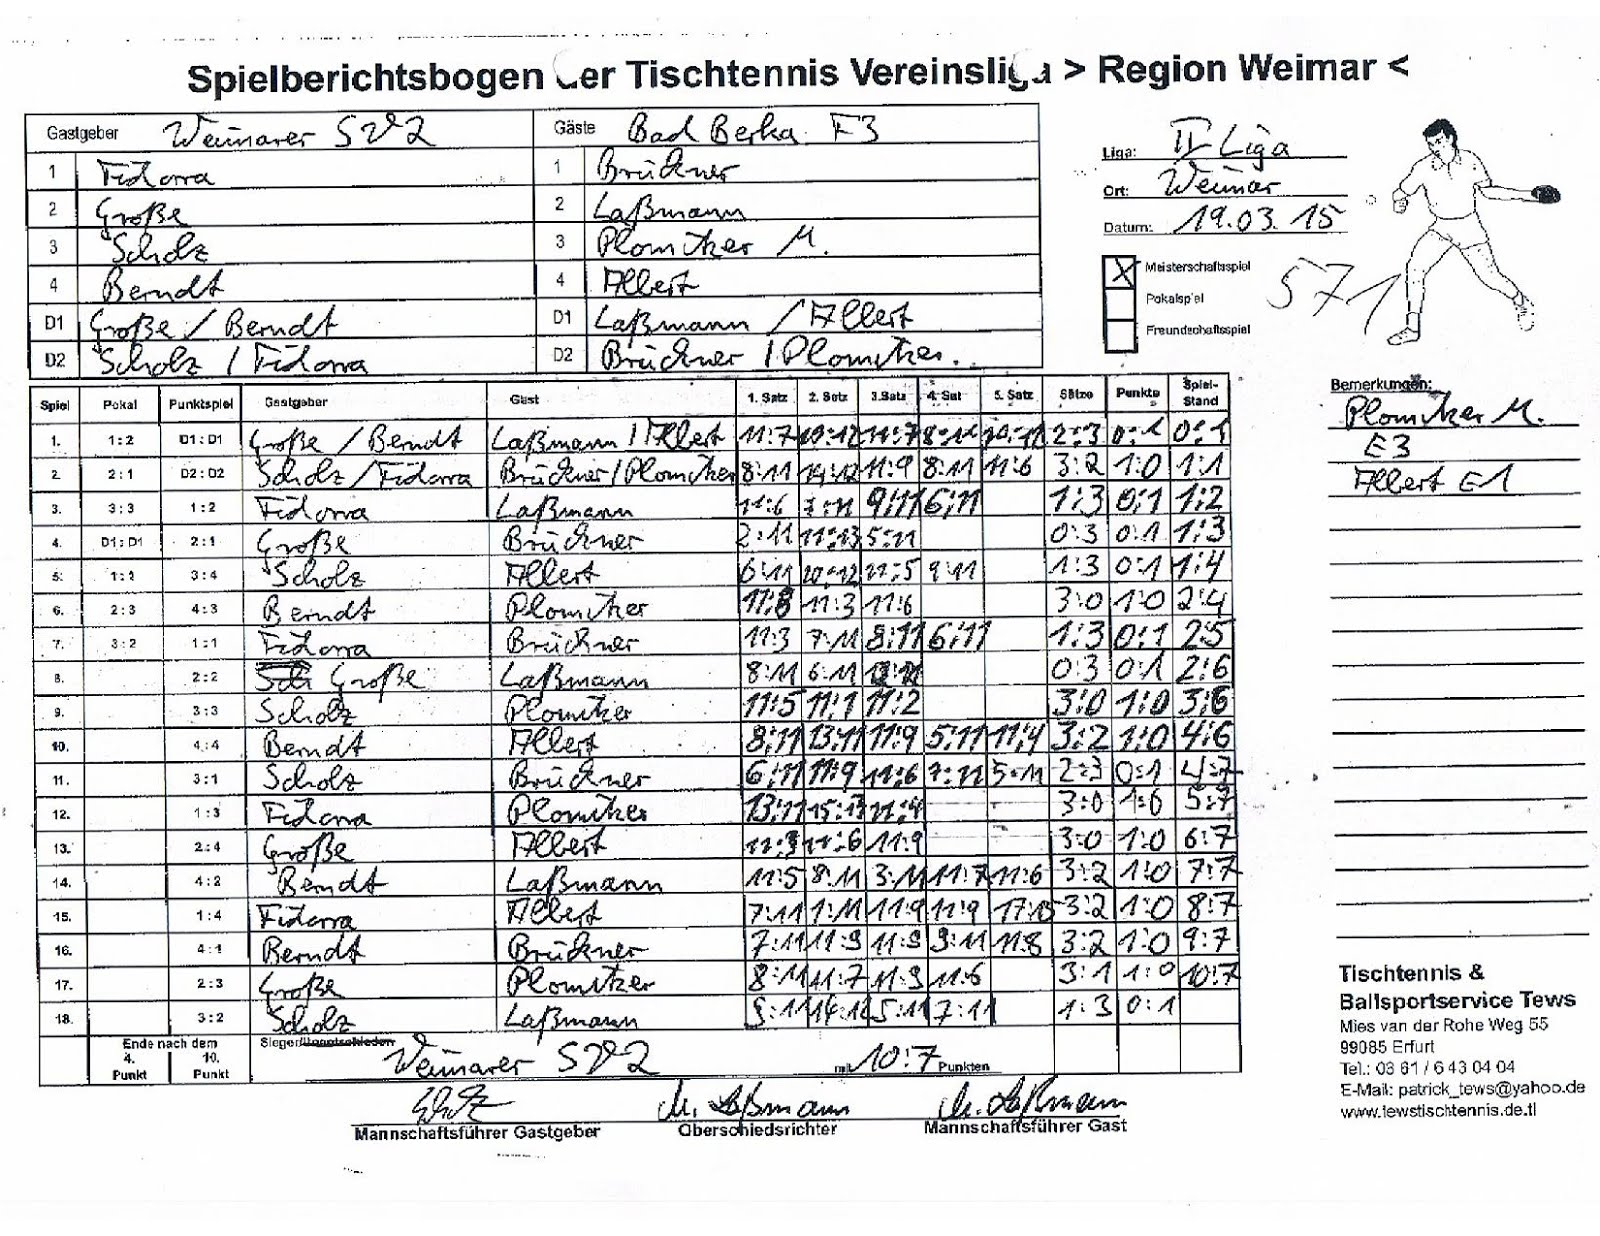 Spielberichtsbogen der Tischtennis Vereinsliga > Region Weimar <
Gastgeber Weimarer SV 2 Gäste Bad Berka E3
1 Fidorra 1 Brückner
2 Große 2 Laßmann
3 Scholz 3 Plomitzer M.
4 Berndt 4 Albert
D1 Große / Berndt D1 Laßmann / Albert
D2 Scholz / Fidorra D2 Brückner / Plomitzer.
Liga: II Liga
Ort: Weimar
Datum: 19.03.15
X Meisterschaftsspiel
Pokalspiel
Freundschaftsspiel
571
Spiel Pokal Punktspiel Gastgeber Gast 1. Satz 2. Satz 3. Satz 4. Satz 5. Satz Sätze Punkte Spiel-Stand
1. 1:2 D1:D1 Große / Berndt Laßmann / Albert 11:7 10:12 11:7 8:11 10:12 2:3 0:1 0:1
2. 2:1 D2:D2 Scholz / Fidorra Brückner / Plomitzer 8:11 14:12 11:9 8:11 11:6 3:2 1:0 1:1
3. 3:3 1:2 Fidorra Laßmann 11:6 7:11 9:11 6:11 1:3 0:1 1:2
4. D1:D1 2:1 Große Brückner 2:11 11:13 5:11 0:3 0:1 1:3
5. 1:1 3:4 Scholz Albert 6:11 10:12 11:5 9:11 1:3 0:1 1:4
6. 2:3 4:3 Berndt Plomitzer 11:8 11:3 11:6 3:0 1:0 2:4
7. 3:2 1:1 Fidorra Brückner 11:3 7:11 8:11 6:11 1:3 0:1 2:5
8. 2:2 Große Laßmann 8:11 6:11 0:3 0:1 2:6
9. 3:3 Scholz Plomitzer 11:5 11:1 11:2 3:0 1:0 3:6
10. 4:4 Berndt Albert 8:11 13:11 11:9 5:11 11:4 3:2 1:0 4:6
11. 3:1 Scholz Brückner 6:11 11:9 11:6 7:11 5:11 2:3 0:1 4:7
12. 1:3 Fidorra Plomitzer 13:11 15:13 11:4 3:0 1:0 5:7
13. 2:4 Große Albert 11:3 11:6 11:9 3:0 1:0 6:7
14. 4:2 Berndt Laßmann 11:5 8:11 3:11 11:7 11:6 3:2 1:0 7:7
15. 1:4 Fidorra Albert 7:11 1:11 11:9 11:9 17:15 3:2 1:0 8:7
16. 4:1 Berndt Brückner 7:11 11:9 11:9 9:11 11:8 3:2 1:0 9:7
17. 2:3 Große Plomitzer 8:11 11:7 11:9 11:6 3:1 1:0 10:7
18. 3:2 Scholz Laßmann 5:11 5:11 7:11 1:3 0:1
Ende nach dem
4. Punkt 10. Punkt
Sieger/Unentschieden Weimarer SV 2 mit 10:7 Punkten
Scholz M. Laßmann M. Laßmann
Mannschaftsführer Gastgeber Oberschiedsrichter Mannschaftsführer Gast
Bemerkungen:
Plomitzer M.
E3
Albert E1
Tischtennis &
Ballsportservice Tews
Mies van der Rohe Weg 55
99085 Erfurt
Tel.: 03 61 / 6 43 04 04
E-Mail: patrick_tews@yahoo.de
www.tewstischtennis.de.tl